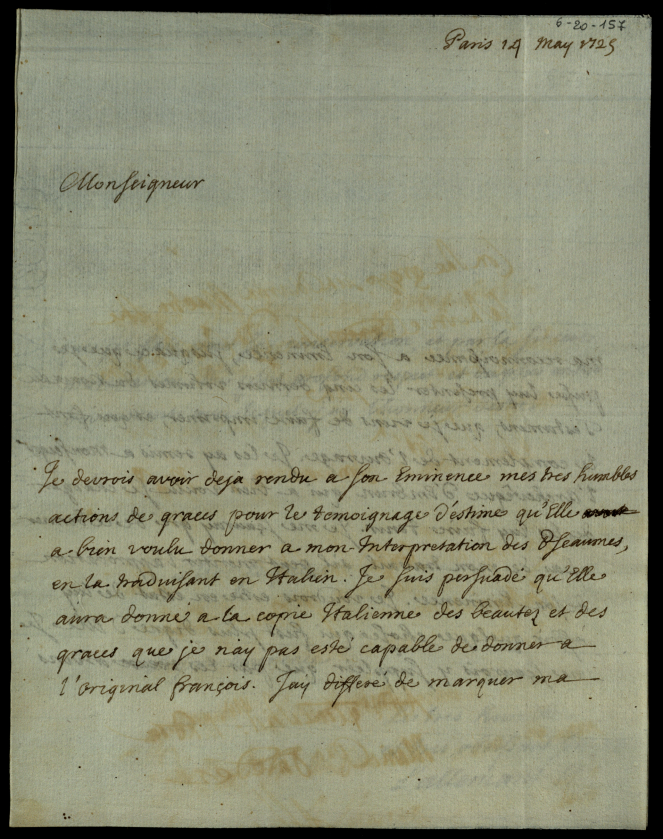 6-20-157
Paris 14 May 1725
Monseigneur
Je devrois avoir deja rendu a Son Eminence mes tres humbles
actions de graces pour le temoignage d'estime qu'Elle
a bien voulu donner a mon Interpretation des Pseaumes,
en la traduisant en Italien. Je suis persuadé qu'Elle
aura donné a la copie Italienne des beautez et des
graces que je n'ay pas esté capable de donner a
l'original françois. J'ay differé de marquer ma